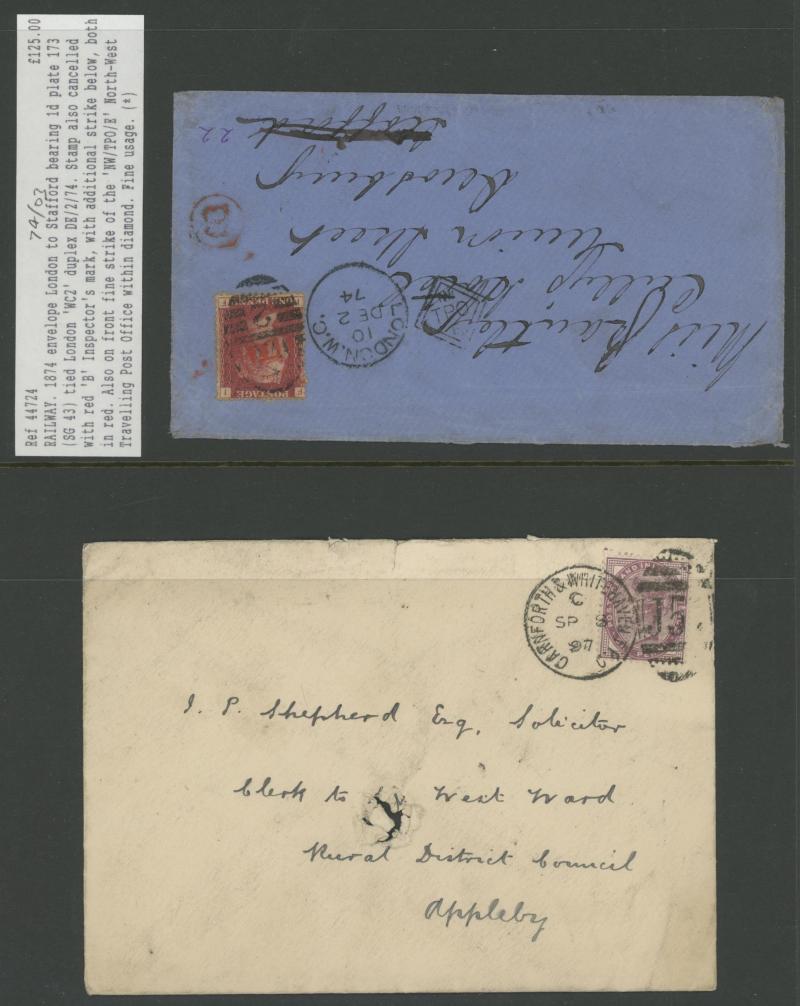 Ref 44724 £125.00
74/03
RAILWAY. 1874 envelope London to Stafford bearing 1d plate 173
(SG 43) tied London 'WC2' duplex DE/2/74. Stamp also cancelled
with red 'B' Inspector's mark, with additional strike below, both
in red. Also on front fine strike of the 'NW/TPO/E' North-West
Travelling Post Office within diamond. Fine usage. (*)
Miss
Union Street
Stafford
22
B
LONDON.W.C.
10
DE 2
74
TPO
POSTAGE
CARNFORTH & WHITEHAVEN
C
SP 8
97
J53
I. P. Shepherd Esq. Solicitor
Clerk to West Ward
Rural District Council
Appleby